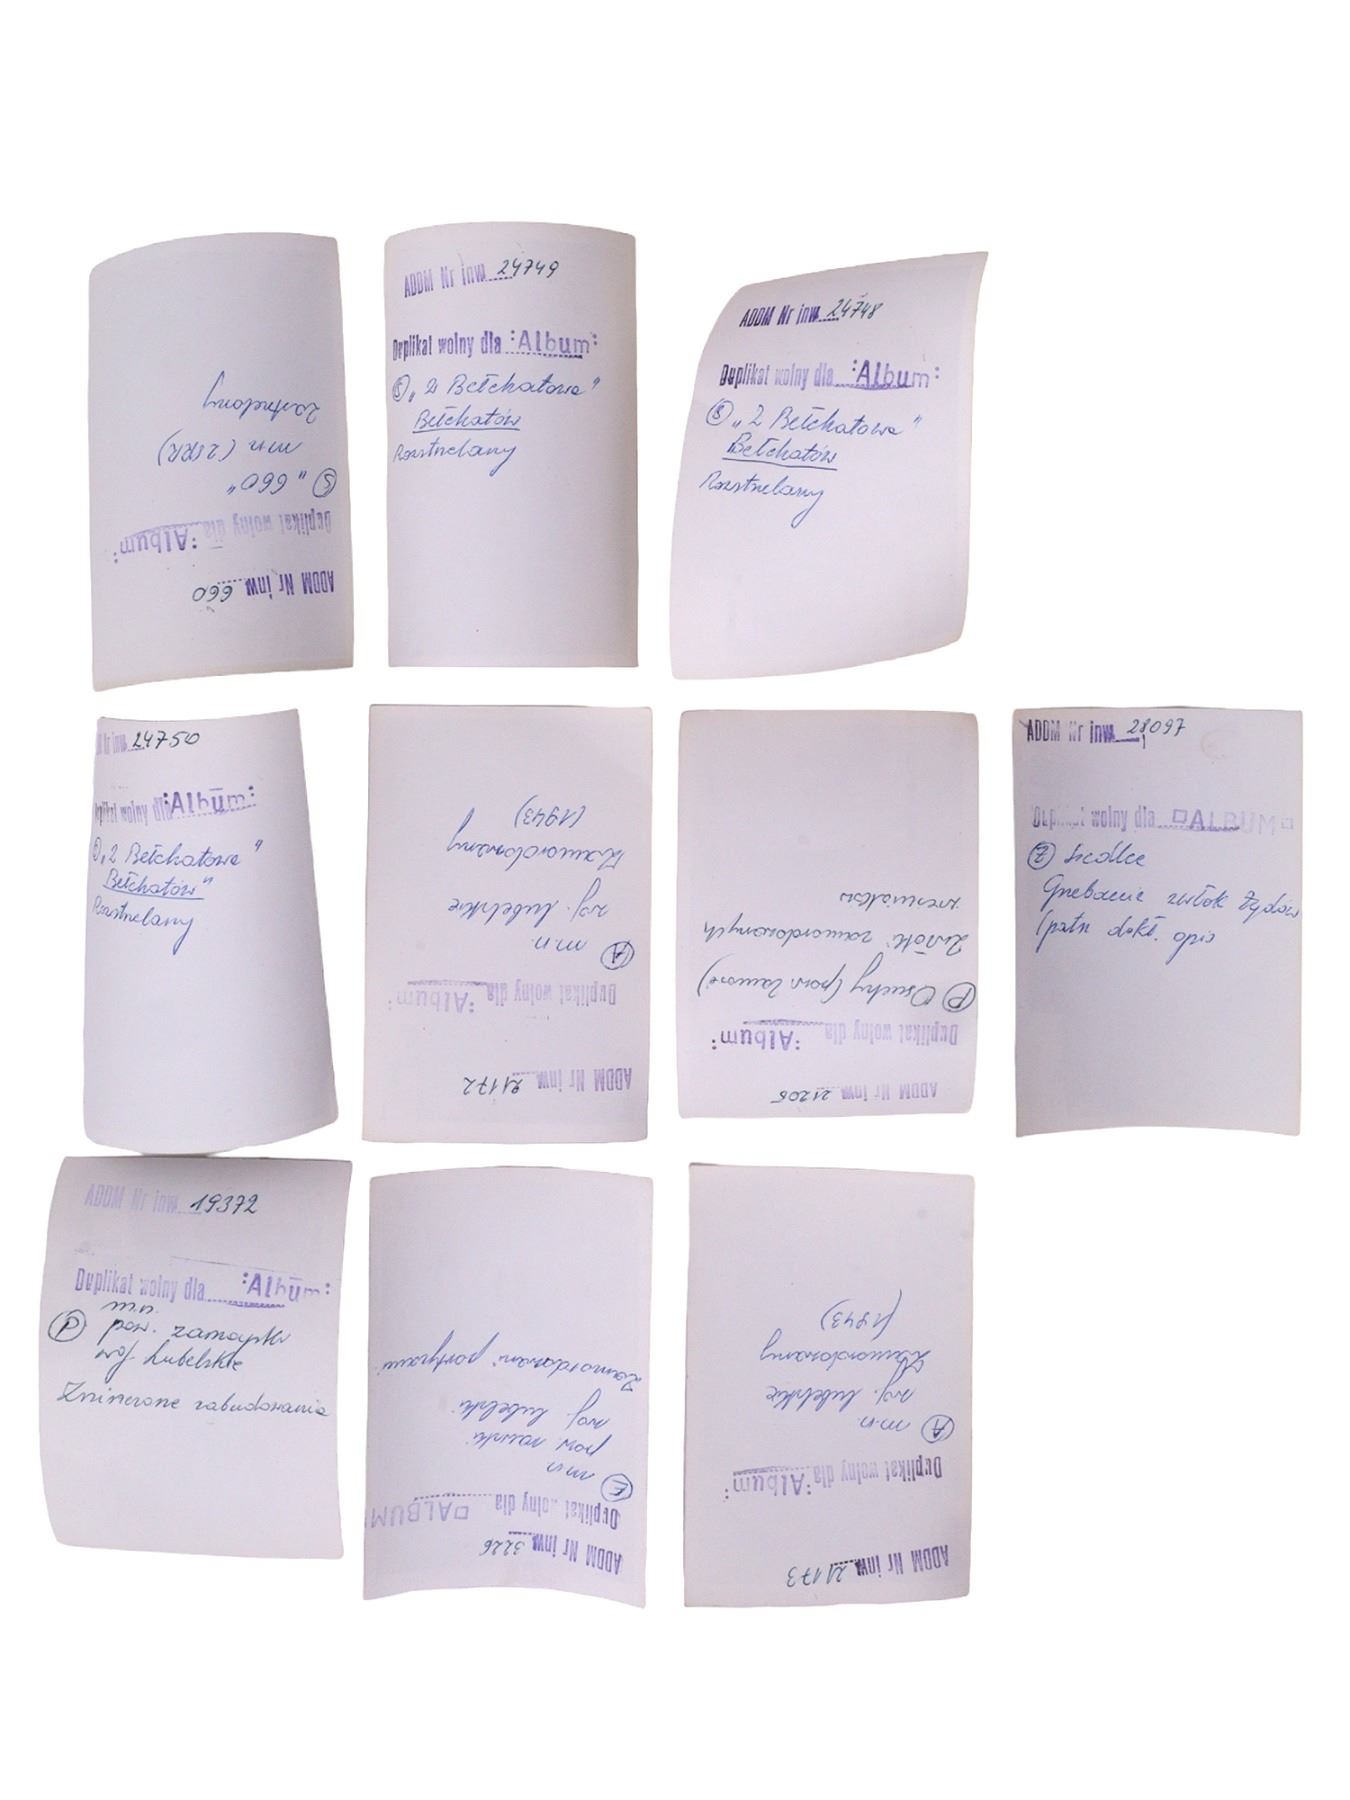 ADDM Nr inw. 660
Duplikat wolny dla :Album:
Ⓢ "660"
m n (ZSRR)
Zastrzelony
ADDM Nr inw. 24749
Duplikat wolny dla :Album:
"Z Bełchatowa"
Bełchatów
Rozstrzelany
ADDM Nr inw. 24748
Duplikat wolny dla :Album:
"Z Bełchatowa"
Bełchatów
Rozstrzelany
Nr inw. 24750
Duplikat wolny dla :Album:
"Z Bełchatowa"
Bełchatów"
Rozstrzelany
ADDM Nr inw. 21172
Duplikat wolny dla :Album:
Ⓐ m.n.
woj. lubelskie
Zamordowany
(1943)
ADDM Nr inw. 21206
Duplikat wolny dla :Album:
Ⓟ Osuchy (pow. Zamość)
Zwłoki zamordowanych
ADDM Nr inw. 28097
Duplikat wolny dla ALBUM
Ⓩ Siedlce
Grzebanie zwłok Żydów
(patrz dokł. opis
ADDM Nr inw. 19372
Duplikat wolny dla :Album:
m.n.
pow. zamojski
woj. Lubelskie
Zniszczone zabudowania
ADDM Nr inw. 3226
Duplikat wolny dla ALBUM
Ⓔ m n
pow.
woj. lubelski
Zamordowani partyzanci
ADDM Nr inw. 21173
Duplikat wolny dla :Album:
Ⓐ m.n.
woj. lubelskie
Zamordowany
(1943)